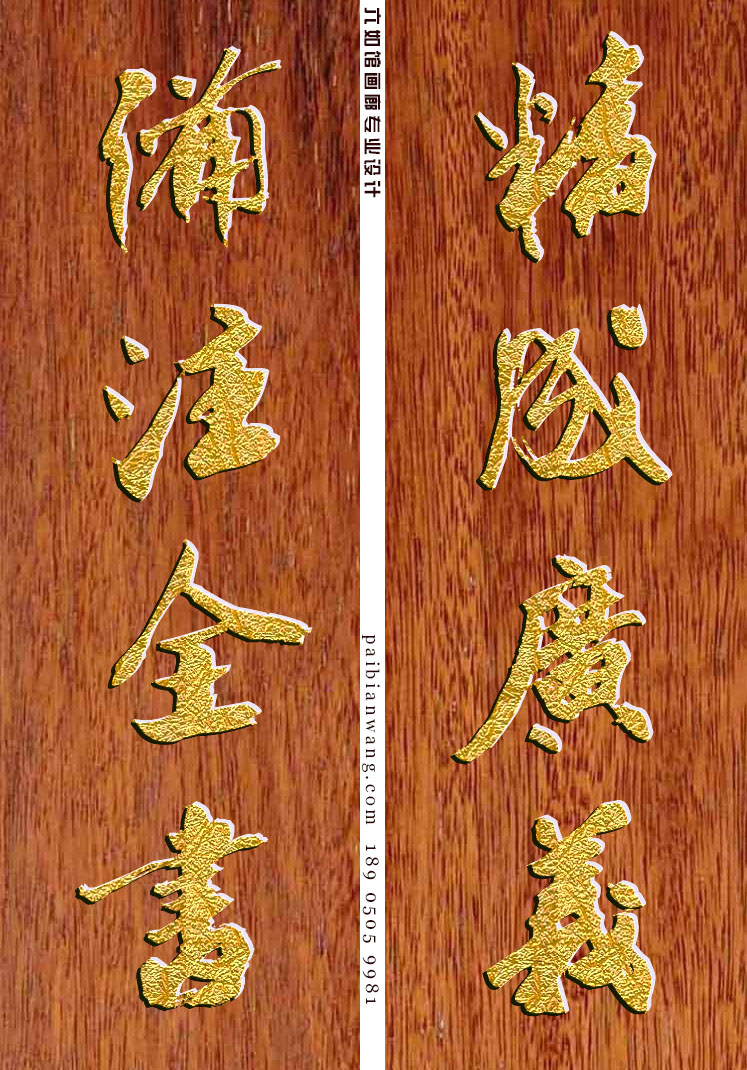 精成廣義
備注全書
六如馆画廊专业设计
paibianwang.com 189 0505 9981